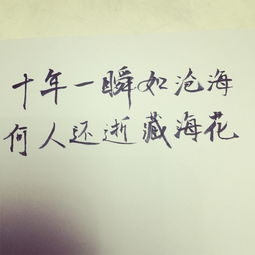 十年一瞬如沧海
何人还逝藏海花